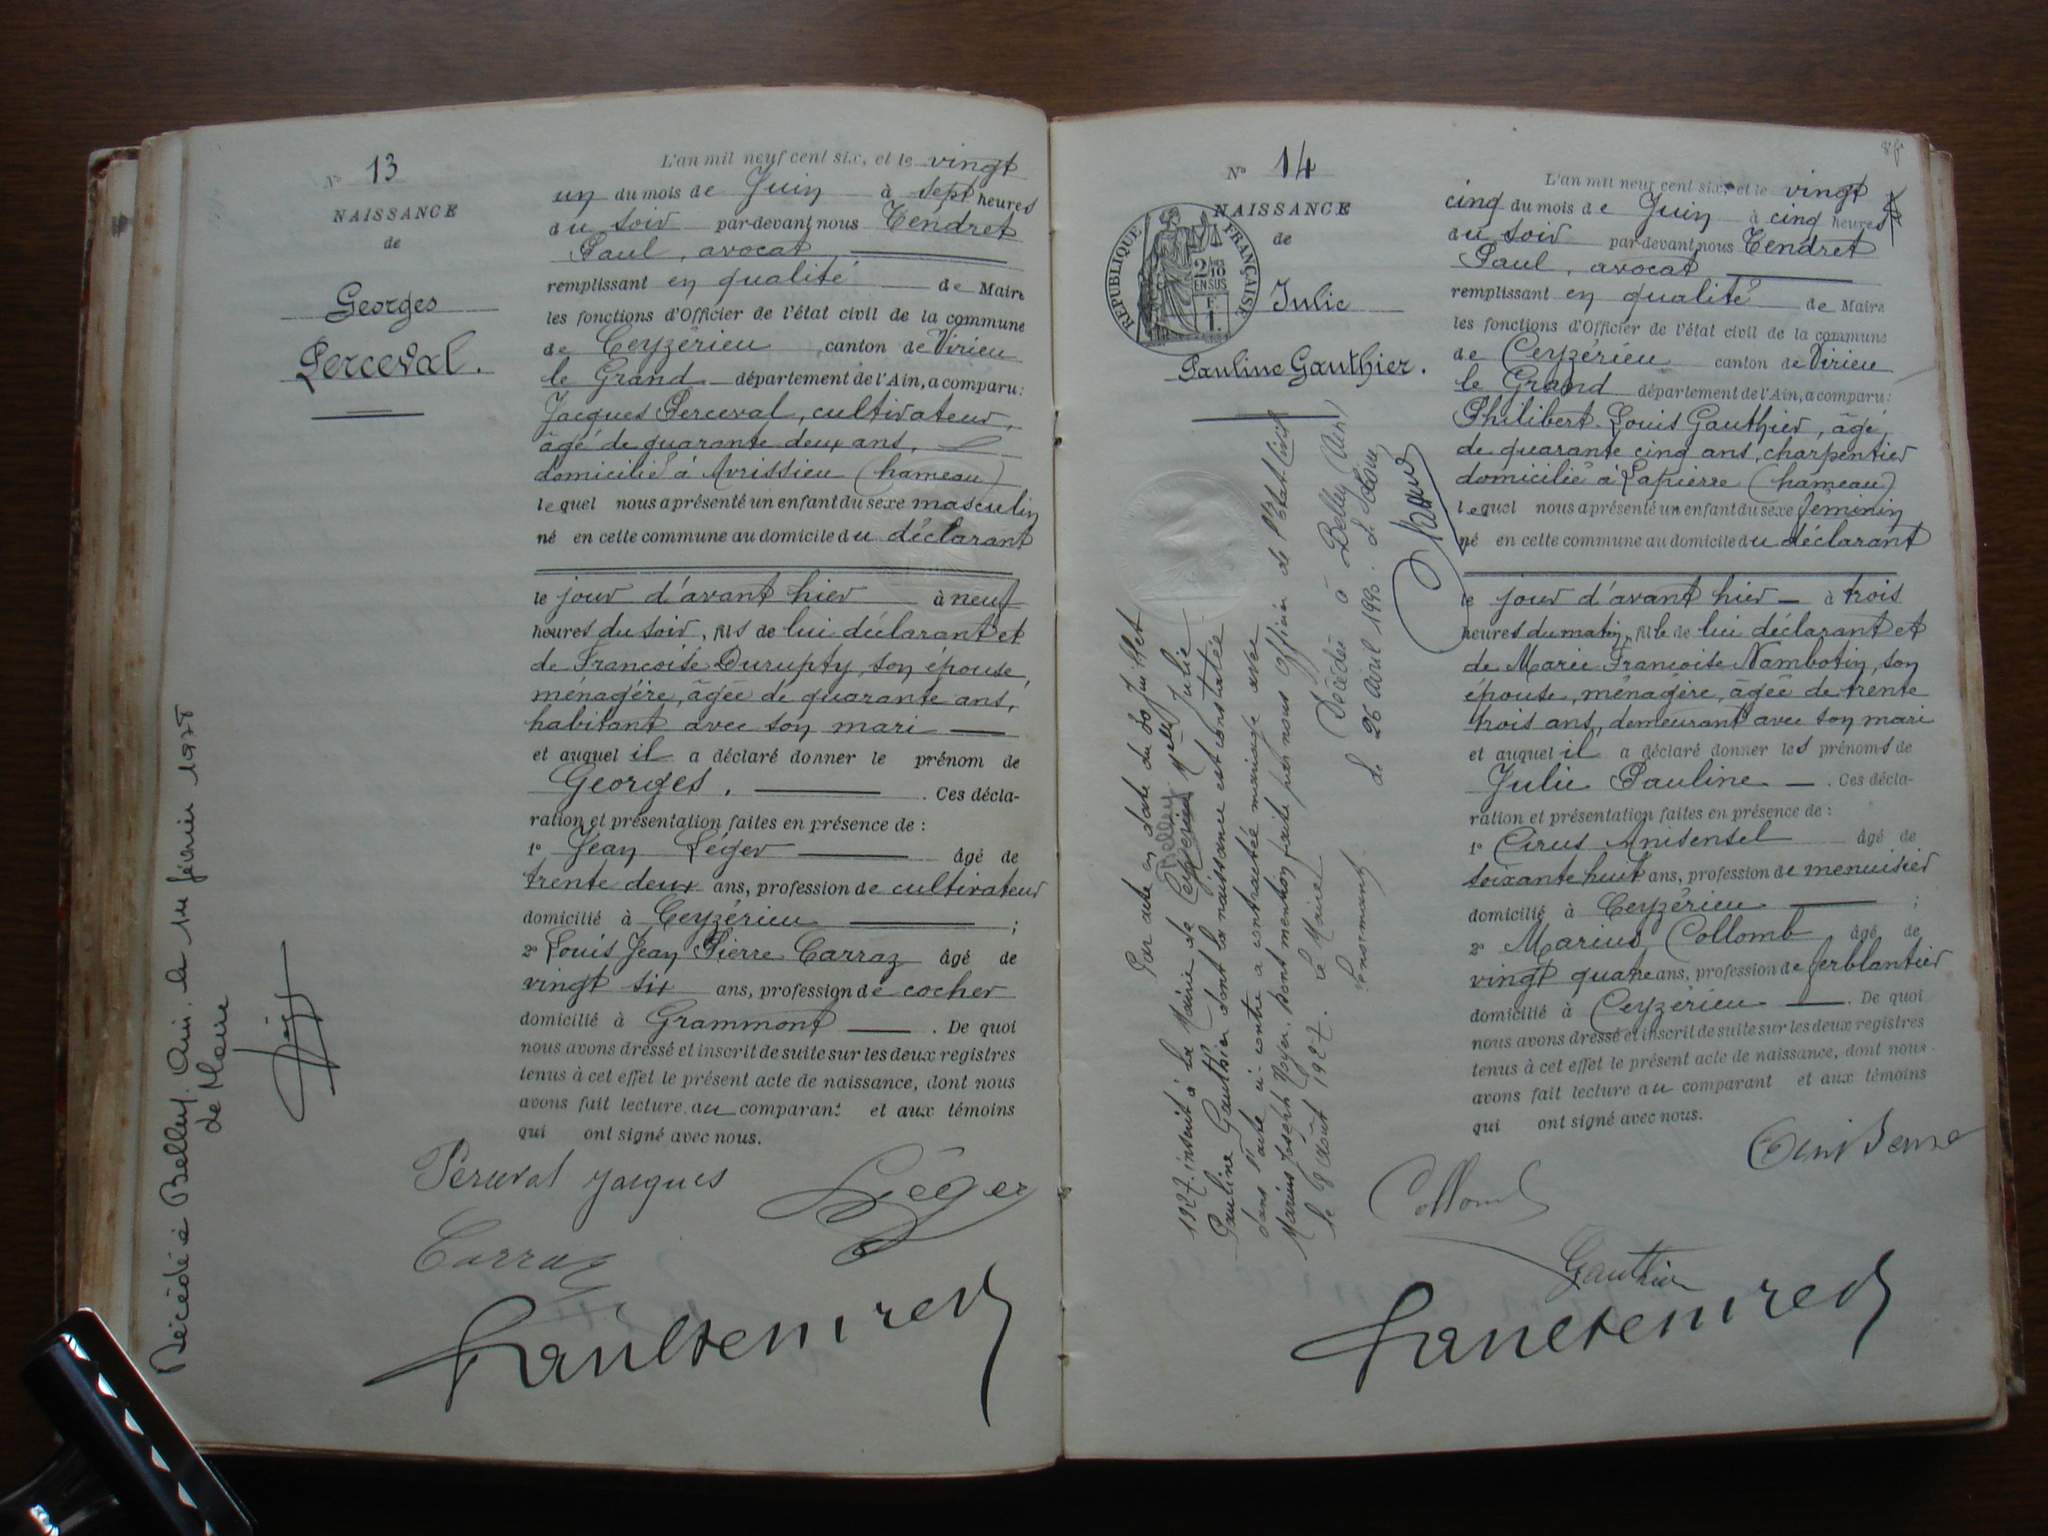 N° 13
NAISSANCE
de
Georges
Perceval.
L'an mil neuf cent six, et le vingt
un du mois de Juin à sept heures
du soir par-devant nous Tendret
Paul, avocat
remplissant en qualité de Maire
les fonctions d'Officier de l'état civil de la commune
de Ceyzérieu canton de Virieu
le Grand département de l'Ain, a comparu:
Jacques Perceval, cultivateur,
âgé de quarante deux ans,
domicilié à Avrissieu (hameau)
lequel nous a présenté un enfant du sexe masculin
né en cette commune au domicile du déclarant
le jour d'avant hier à neuf
heures du soir, fils de lui déclarant et
de Françoise Durupty, son épouse,
ménagère, âgée de quarante ans,
habitant avec son mari
et auquel il a déclaré donner le prénom de
Georges. Ces décla-
ration et présentation faites en présence de :
1° Jean Léger âgé de
trente deux ans, profession de cultivateur
domicilié à Ceyzérieu ;
2° Louis Jean Pierre Carraz âgé de
vingt six ans, profession de cocher
domicilié à Grammont . De quoi
nous avons dressé et inscrit de suite sur les deux registres
tenus à cet effet le présent acte de naissance, dont nous
avons fait lecture au comparant et aux témoins
qui ont signé avec nous.
Perceval Jacques Léger
Carraz
Paul Tendret
Décédé à Belley. Ain. le 1er février 1975
Le Maire
N° 14
NAISSANCE
de
Julie
Pauline Gauthier.
RÉPUBLIQUE FRANÇAISE
2/10
EN SUS
F.
1.
L'an mil neuf cent six, et le vingt
cinq du mois de Juin à cinq heures
du soir par-devant nous Tendret
Paul, avocat
remplissant en qualité de Maire
les fonctions d'Officier de l'état civil de la commune
de Ceyzérieu canton de Virieu
le Grand département de l'Ain, a comparu:
Philibert Louis Gauthier, âgé,
de quarante cinq ans, charpentier
domicilié à Lapierre (hameau)
lequel nous a présenté un enfant du sexe féminin
né en cette commune au domicile du déclarant
le jour d'avant hier à trois
heures du matin, fille de lui déclarant et
de Marie Françoise Nambotin, son
épouse, ménagère, âgée de trente
trois ans, demeurant avec son mari
et auquel il a déclaré donner les prénoms de
Julie Pauline . Ces décla-
ration et présentation faites en présence de :
1° Cirus Anisensel âgé de
soixante huit ans, profession de menuisier
domicilié à Ceyzérieu ;
2° Marius Collomb âgé de
vingt quatre ans, profession de ferblantier
domicilié à Ceyzérieu . De quoi
nous avons dressé et inscrit de suite sur les deux registres
tenus à cet effet le présent acte de naissance, dont nous
avons fait lecture au comparant et aux témoins
qui ont signé avec nous.
Collomb
Gauthier
Paul Tendret
Par acte en date du 30 Juillet
1927. inscrit à la Mairie de Ceyzérieu Belley Melle Julie
Pauline Gauthier dont la naissance est constatée
dans l'acte ci-contre a contracté mariage avec
Marius Joseph Noyer. Dont mention faite par nous Officier de l'Etat Civil
le 8 août 1927. Le Maire
Lenormand
Décédée à Belley (Ain)
le 26 avril 1990. le Maire,